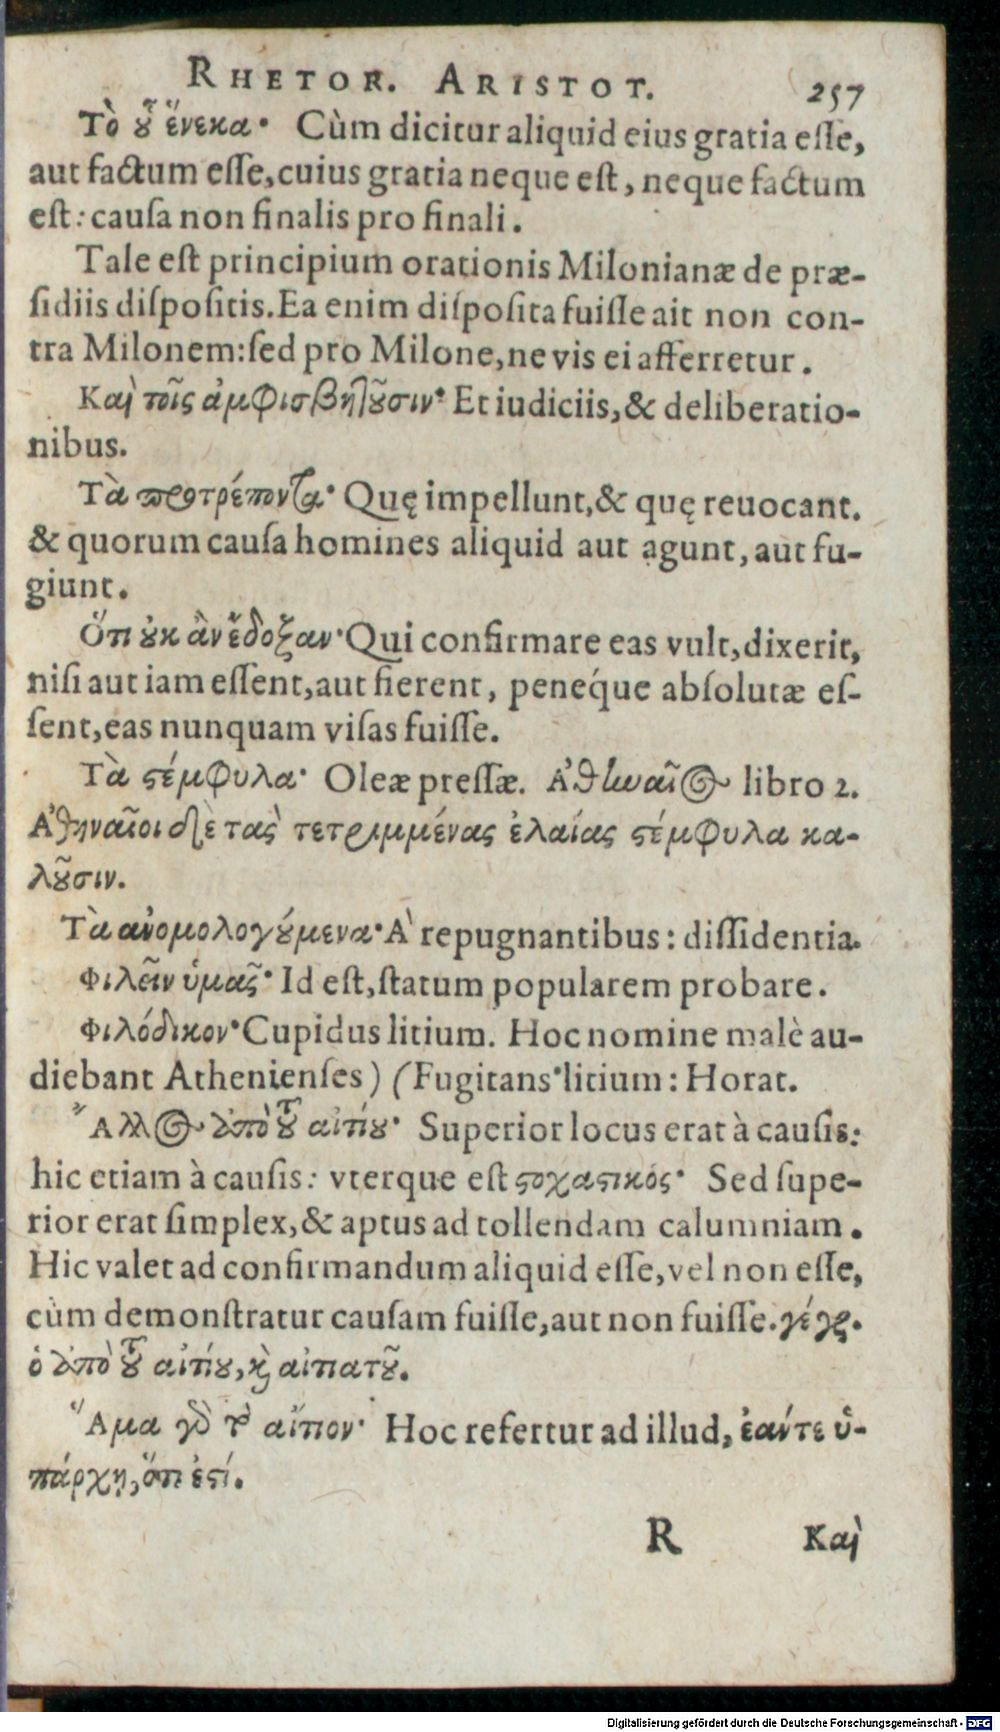 RHETOR. ARISTOT. 257
Τὸ οὗ ἕνεκα· Cùm dicitur aliquid eius gratia eſſe,
aut factum eſſe, cuius gratia neque est, neque factum
est: cauſa non finalis pro finali.
Tale est principium orationis Milonianæ de præ-
ſidiis diſpoſitis. Ea enim diſpoſita fuiſſe ait non con-
tra Milonem: ſed pro Milone, ne vis ei afferretur.
Καὶ τοῖς ἀμφισβητοῦσιν· Et iudiciis, & deliberatio-
nibus.
Τὰ προτρέποντα· Quę impellunt, & quę reuocant.
& quorum cauſa homines aliquid aut agunt, aut fu-
giunt.
Ὅτι οὐκ ἂν ἔδοξαν· Qui confirmare eas vult, dixerit,
niſi aut iam eſſent, aut fierent, penéque abſolutæ eſ-
ſent, eas nunquam viſas fuiſſe.
Τὰ στέμφυλα· Oleæ preſſæ. Ἀθήναιος libro 2.
Ἀθηναῖοι δὲ τὰς τετριμμένας ἐλαίας στέμφυλα κα-
λοῦσιν.
Τὰ ἀνομολογούμενα· A repugnantibus: diſſidentia.
Φιλεῖν ὑμᾶς· Id est, statum popularem probare.
Φιλόδικον· Cupidus litium. Hoc nomine malè au-
diebant Athenienſes) (Fugitans litium: Horat.
Ἄλλος ἀπὸ τοῦ αἰτίου· Superior locus erat à cauſis:
hic etiam à cauſis: vterque est στοχαστικός· Sed ſupe-
rior erat ſimplex, & aptus ad tollendam calumniam.
Hic valet ad confirmandum aliquid eſſe, vel non eſſe,
cùm demonstratur cauſam fuiſſe, aut non fuiſſe. γέγρ.
ὁ ἀπὸ τοῦ αἰτίου, καὶ αἰτιατοῦ.
Ἅμα γὰρ τὸ αἴτιον· Hoc refertur ad illud, ἐάντε ὑ-
πάρχῃ, ὅτι ἐστί.
R Καὶ
Digitalisierung gefördert durch die Deutsche Forschungsgemeinschaft - DFG